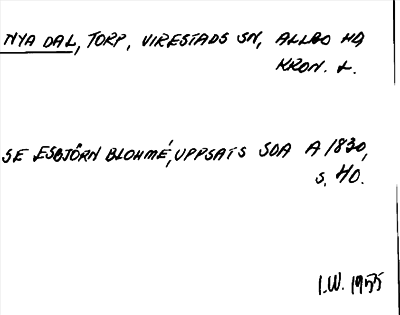 NYA DAL, TORP, VIRESTADS SN, ALLBO HD,
KRON. L.
SE ESBJÖRN BLOHMÉ, UPPSATS SOA A 1830,
S. 40.
I.W. 1955